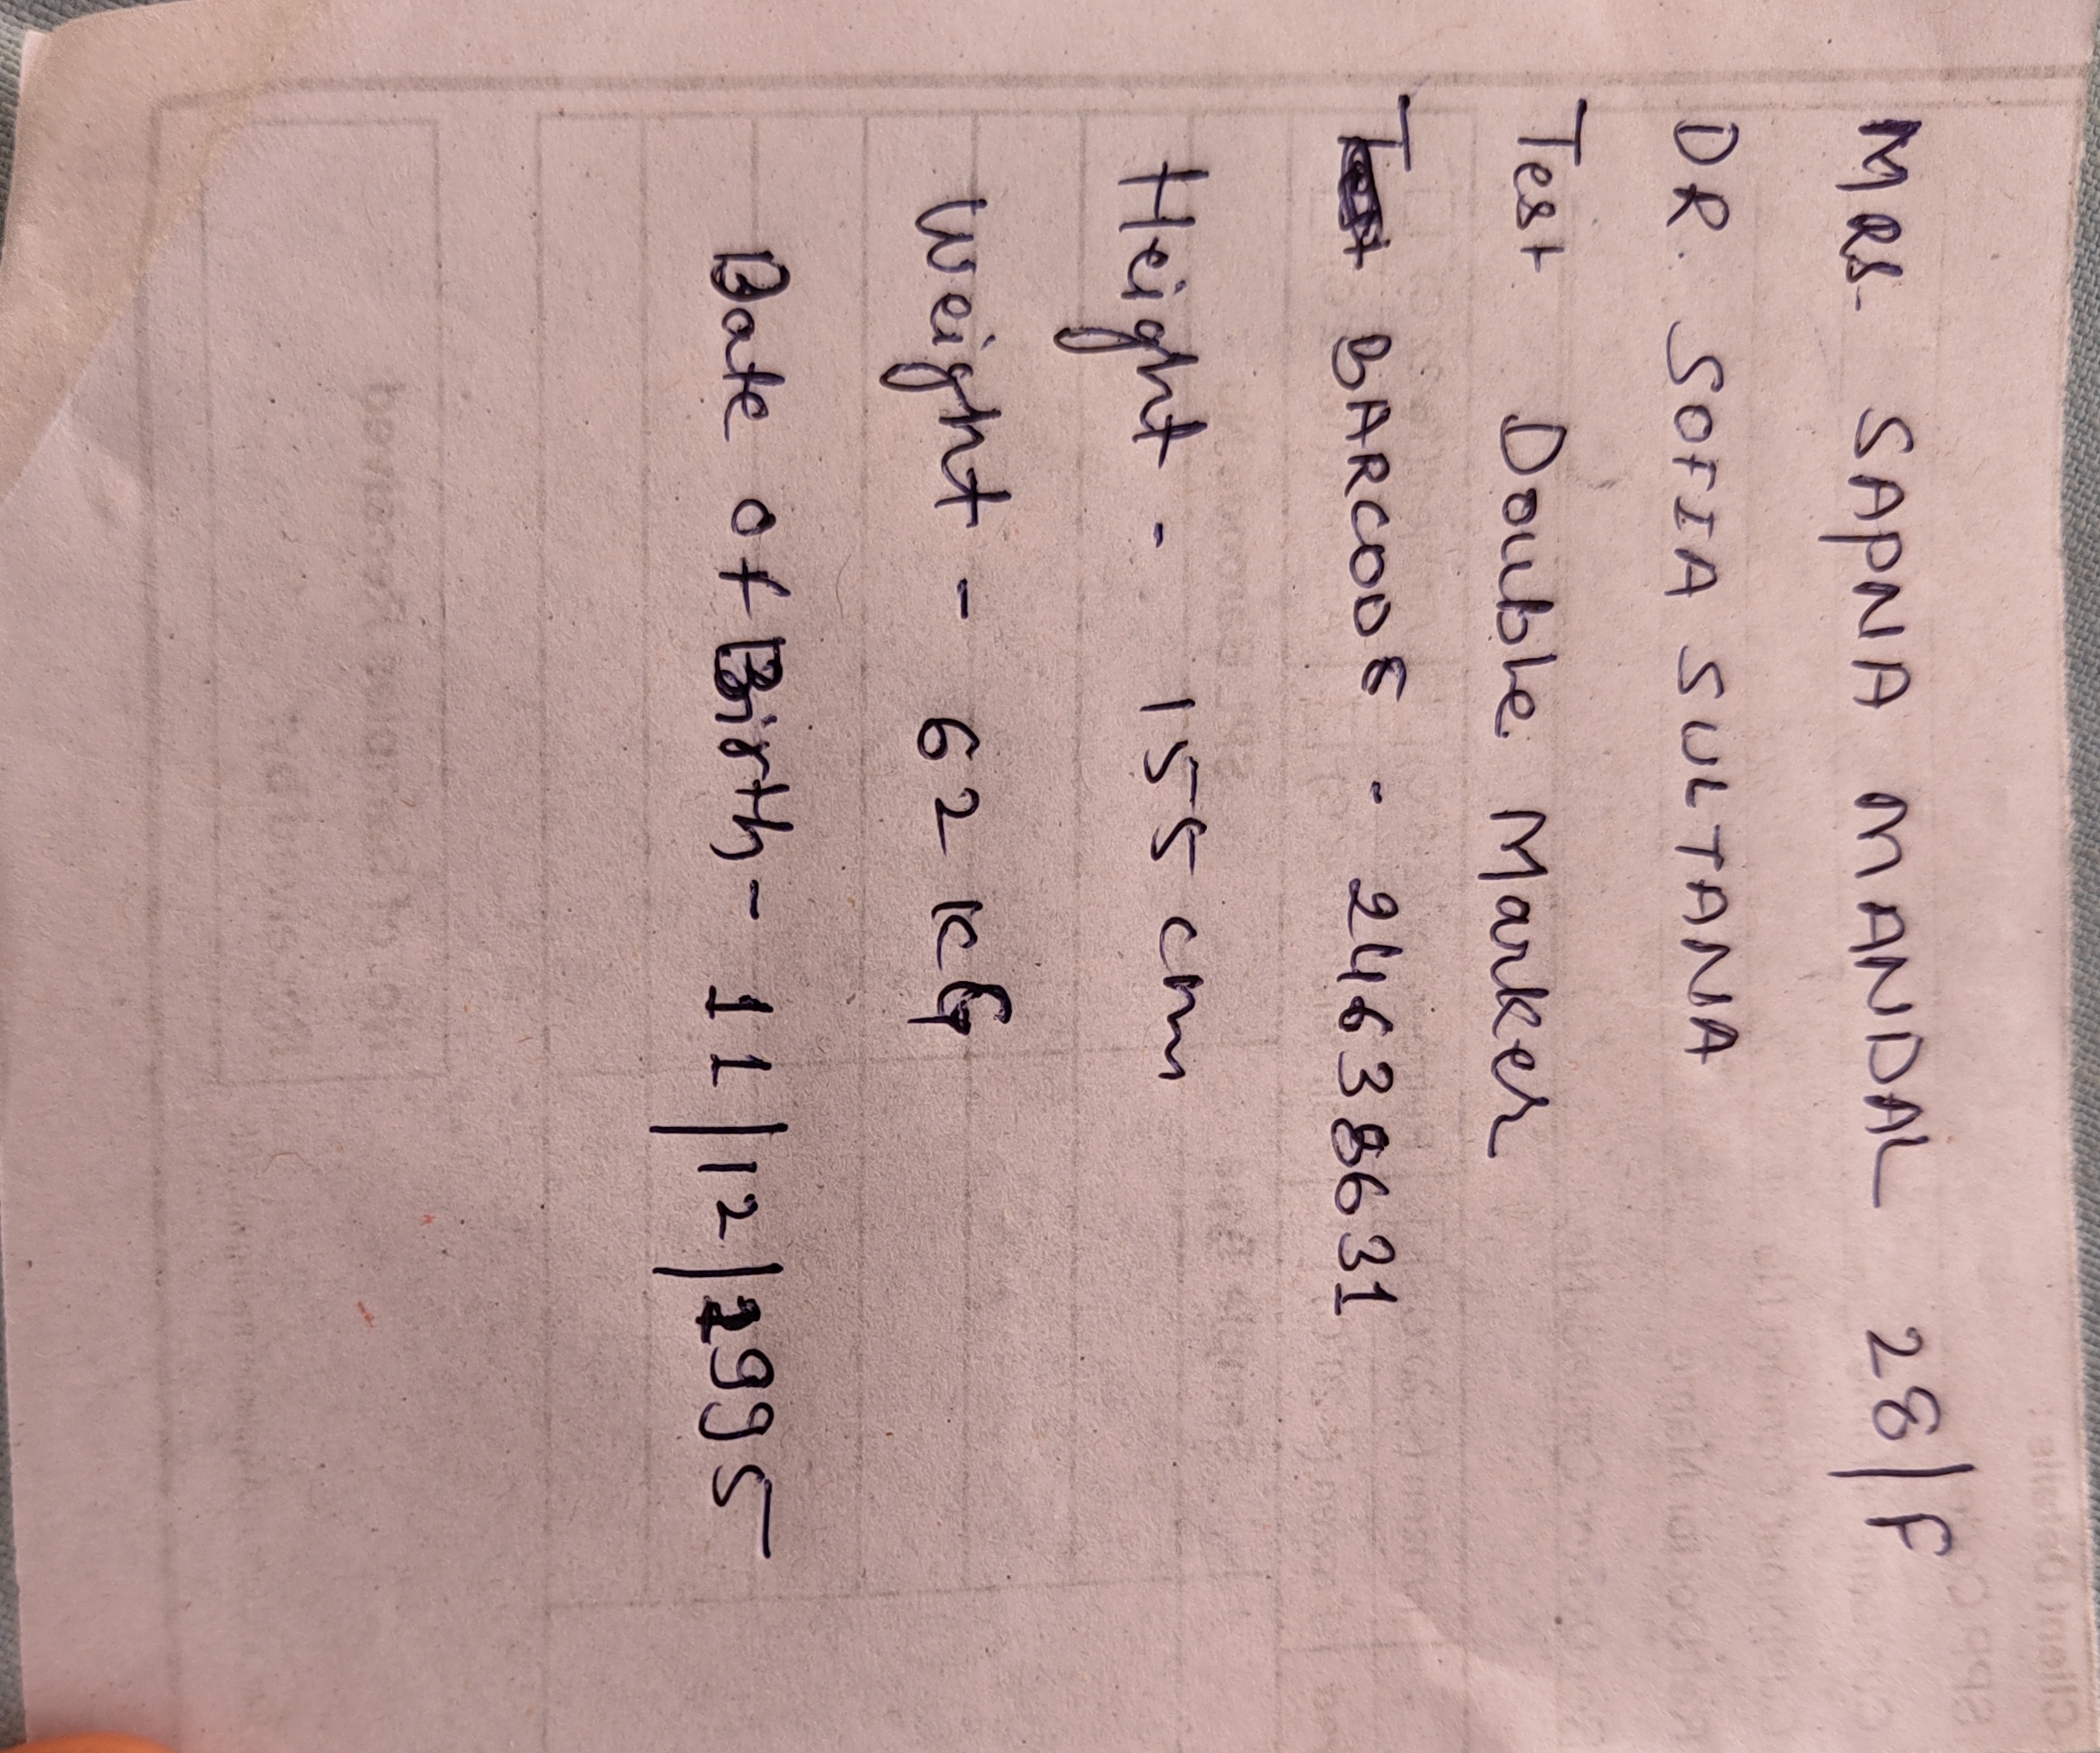 MRS. SAPNA MANDAL 28/F
DR. SOFIA SULTANA
Test Double Marker
BARCODE - 246386631
Height - 155 cm
Weight - 62 KG
Date of Birth - 11/12/1995